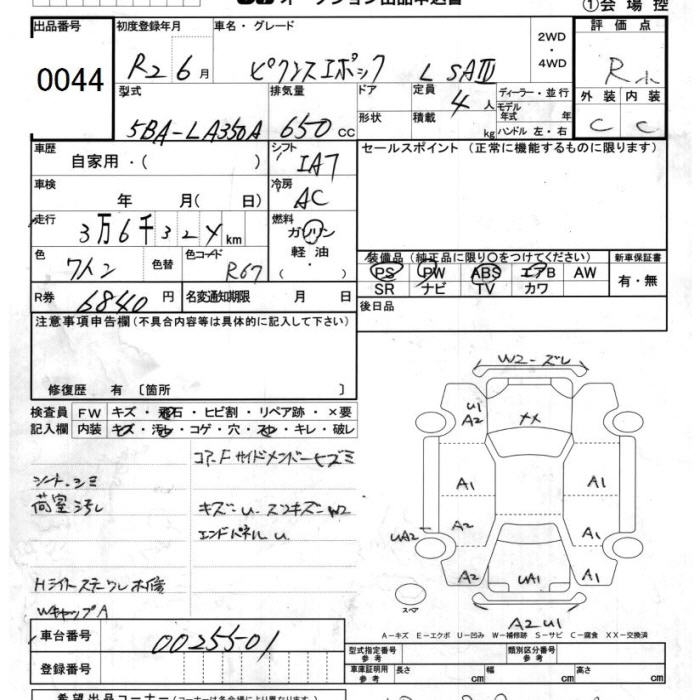 オークション出品申込書 ①会場控
出品番号 初度登録年月 車名・グレード 2WD ・ 4WD 評価点
0044 R2 6月 ピクシスエポック L SAⅢ R
型式 排気量 ドア 定員 4人 ディーラー・並行 外装 内装
5BA-LA350A 650cc 形状 積載 kg モデル年式 年 ハンドル 左・右 C C
車歴 自家用・( ) シフト IA7 セールスポイント(正常に機能するものに限ります)
車検 年 月( 日) 冷房 AC
走行 3万6千324km 燃料 ガソリン・軽油・( )
色 ワイン 色替 色コード R67 装備品(純正品に限り○をつけてください) 新車保証書
PS PW ABS エアB AW 有・無
SR ナビ TV カワ
R券 6840円 名変通知期限 月 日 後日品
注意事項申告欄(不具合内容等は具体的に記入して下さい)
修復歴 有 〔箇所 〕
検査員 FW キズ・飛石・ヒビ割・リペア跡・×要
記入欄 内装 キズ・汚れ・コゲ・穴・スレ・キレ・破レ
コアF サイドメンバーヒズミ
シート.シミ
荷室汚れ キズ=U スリキズ=W2
エンドパネルU
Hライトステー ワレ
WキャップA
W2-ズレ
U1 A2 XX
A1 A1
A2 A1
UA2
A2 UA1 A1
スペア
A2U1
A-キズ E-エクボ U-凹み W-補修跡 S-サビ C-腐食 XX-交換済
車台番号 0025501
型式指定番号 参考 類別区分番号 参考
登録番号 車庫証明用 参考 長さ cm 幅 cm 高さ cm
希望出品コーナー(コーナーは各会場により異なります)